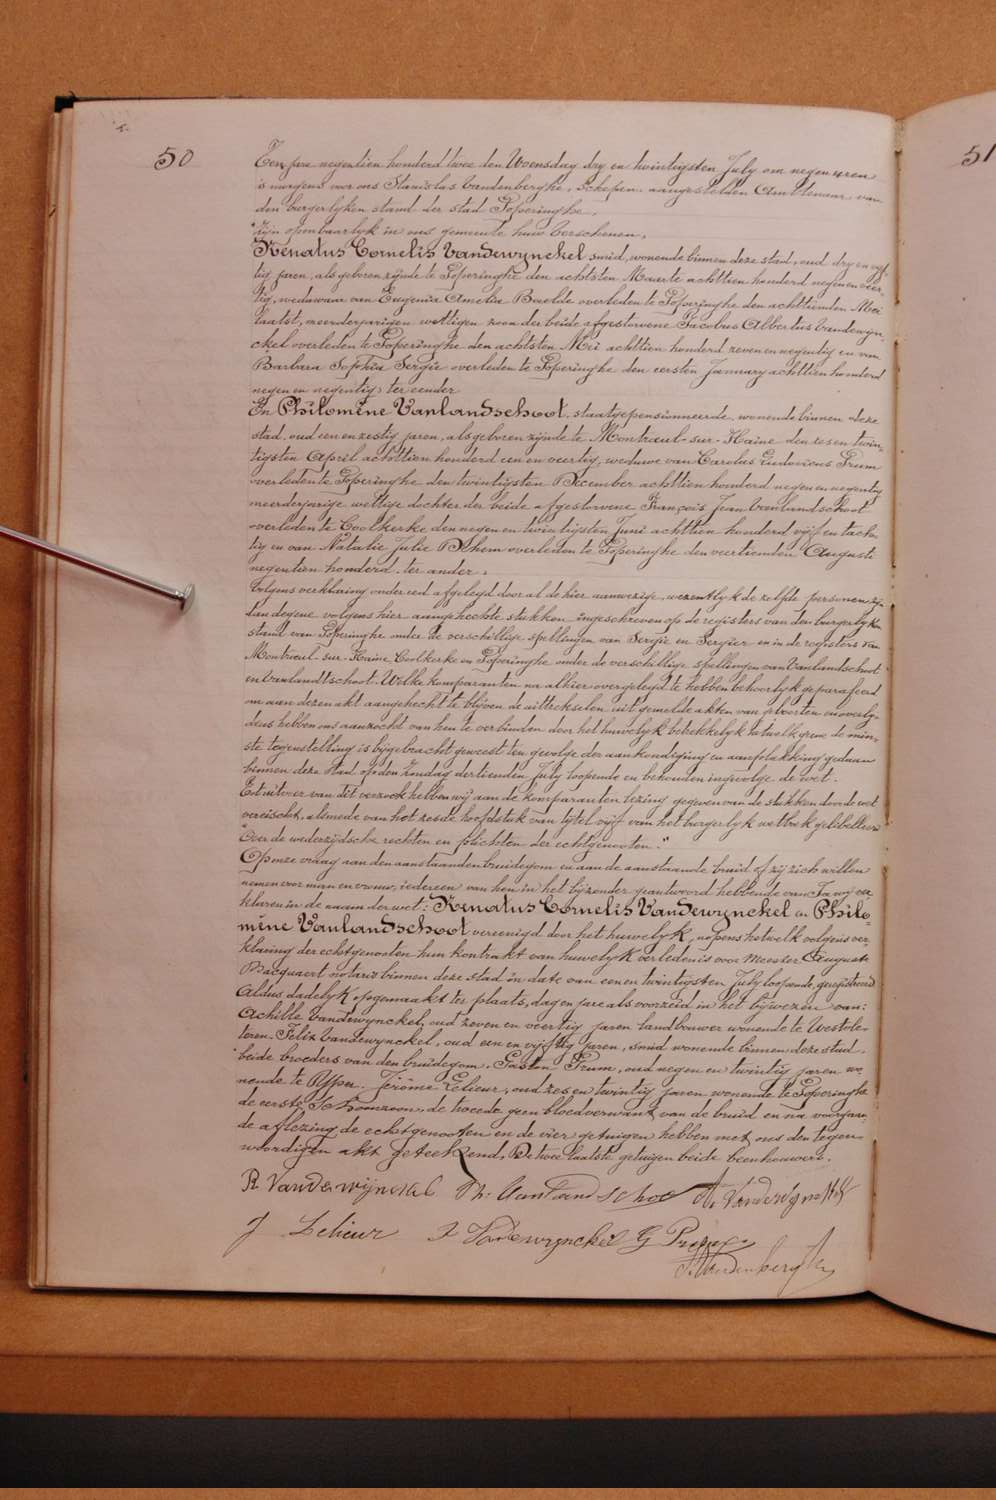 50
51
Een jare negentien honderd twee den Woensdag dry en twintigsten July om negen uren
's morgens voor ons Stanislas Vandenberghe, Schepen aangestelden Ambtenaar van
den burgerlyken stand der stad Poperinghe,
zyn openbaarlyk in ons gemeente huis verschenen,
Renatus Cornelis Vandewynckel smid, wonende binnen deze stad, oud dry en vyf-
tig jaren, als geboren zynde te Poperinghe den achtsten Maarte achttien honderd negen en veer-
tig, weduwaar van Eugenia Amelia Baelde overleden te Poperinghe den achttienden Mei
laatst, meerderjarigen wettigen zoon der beide afgestorvene Jacobus Albertus Vandewyn-
ckel overleden te Poperinghe den achtsten Mei achttien honderd zeven en negentig en van
Barbara Sophia Sergie overleden te Poperinghe den eersten January achttien honderd
negen en negentig, ter eender
En Philomène Vanlandschoot, staatgepensionneerde, wonende binnen deze
stad, oud een en zestig jaren, als geboren zynde te Montrœul-sur-Haine den zes en twin-
tigsten April achttien honderd een en veertig, weduwe van Carolus Ludovicus Prum
overleden te Poperinghe den twintigsten December achttien honderd negen en negentig
meerderjarige wettige dochter der beide afgestorvene François Jean Vanlandschoot
overleden te Coolkerke den negen en twintigsten Juni achttien honderd vyf en tach-
tig en van Natalie Julie Dehem overleden te Poperinghe den veertienden Augusti
negentien honderd, ter ander.
Volgens verklaring onder eed afgelegd door al de hier aanwezige, wezentlyk de zelfde personen zy-
dan degene volgens hier aangehechte stukken ingeschreven op de registers van den burgerlyken
stand van Poperinghe onder de verschillige spellingen van Sergie en Sergier en in de registers van
Montrœul-sur-Haine Coolkerke en Poperinghe onder de verschillige spellingen van Vanlandschoot
en Vanlandtschoot. Welke komparanten na alhier overgelegd te hebben behoorlyk geparafeerd
om aan dezen akt aangehecht te blyven de uittrekselen uit gemelde akten van geboorten en overly-
dens hebben ons aanzocht van hen te verbinden door het huwelyk betrekkelyk hetwelk geene de min-
ste tegenstelling is bygebracht geweest ten gevolge der aankondiging en aanplakking gedaan
binnen deze stad op den Zondag dertienden July loopende en behouden ingevolge de wet.
En uitvoer van dit verzoek hebben wy aan de komparanten lezing gegeven van de stukken door de wet
vereischt, alsmede van het zesde hoofdstuk van tytel vyf van het burgerlyk wetboek getibelleerd
"Over de wederzydsche rechten en plichten der echtgenooten."
Op onze vraag aan den aanstaanden bruidegom en aan de aanstaande bruid of zy zich willen
nemen voor man en vrouw; iedereen van hen in het byzonder geantwoord hebbende van Ja wy ver-
klaren in de naam der wet: Renatus Cornelis Vandewynckel en Philo-
mène Vanlandschoot vereenigd door het huwelyk, nopens hetwelk volgens ver-
klaring der echtgenooten hun kontrakt van huwelyk verleden is voor Meester Auguste
Bacquaert notaris binnen deze stad in date van een en twintigsten July loopende, geregistreerd
Aldus dadelyk opgemaakt ter plaats, dag en jare als voorzeid in het bywezen van:
Achille Vandewynckel, oud zeven en veertig jaren landbouwer wonende te Westvle-
teren. Felix Vandewynckel, oud een en vyftig jaren, smid wonende binnen deze stad,
beide broeders van den bruidegom. Gaston Prum, oud negen en twintig jaren wo-
nende te Yper. Jerôme Lelieur, oud zes en twintig jaren wonende te Poperinghe
de eerste Schoonzoon, de tweede geen bloedverwant van de bruid en na voorgaan-
de aflezing de echtgenooten en de vier getuigen hebben met ons den tegen-
woordigen akt geteekend, De twee laatste getuigen beide beenhouwers.
R Vandewijnckel Ph. Vanlandschoo A. Vandewynckel
J Lelieur F Vandewynckel G Prum
S. Vandenberghe